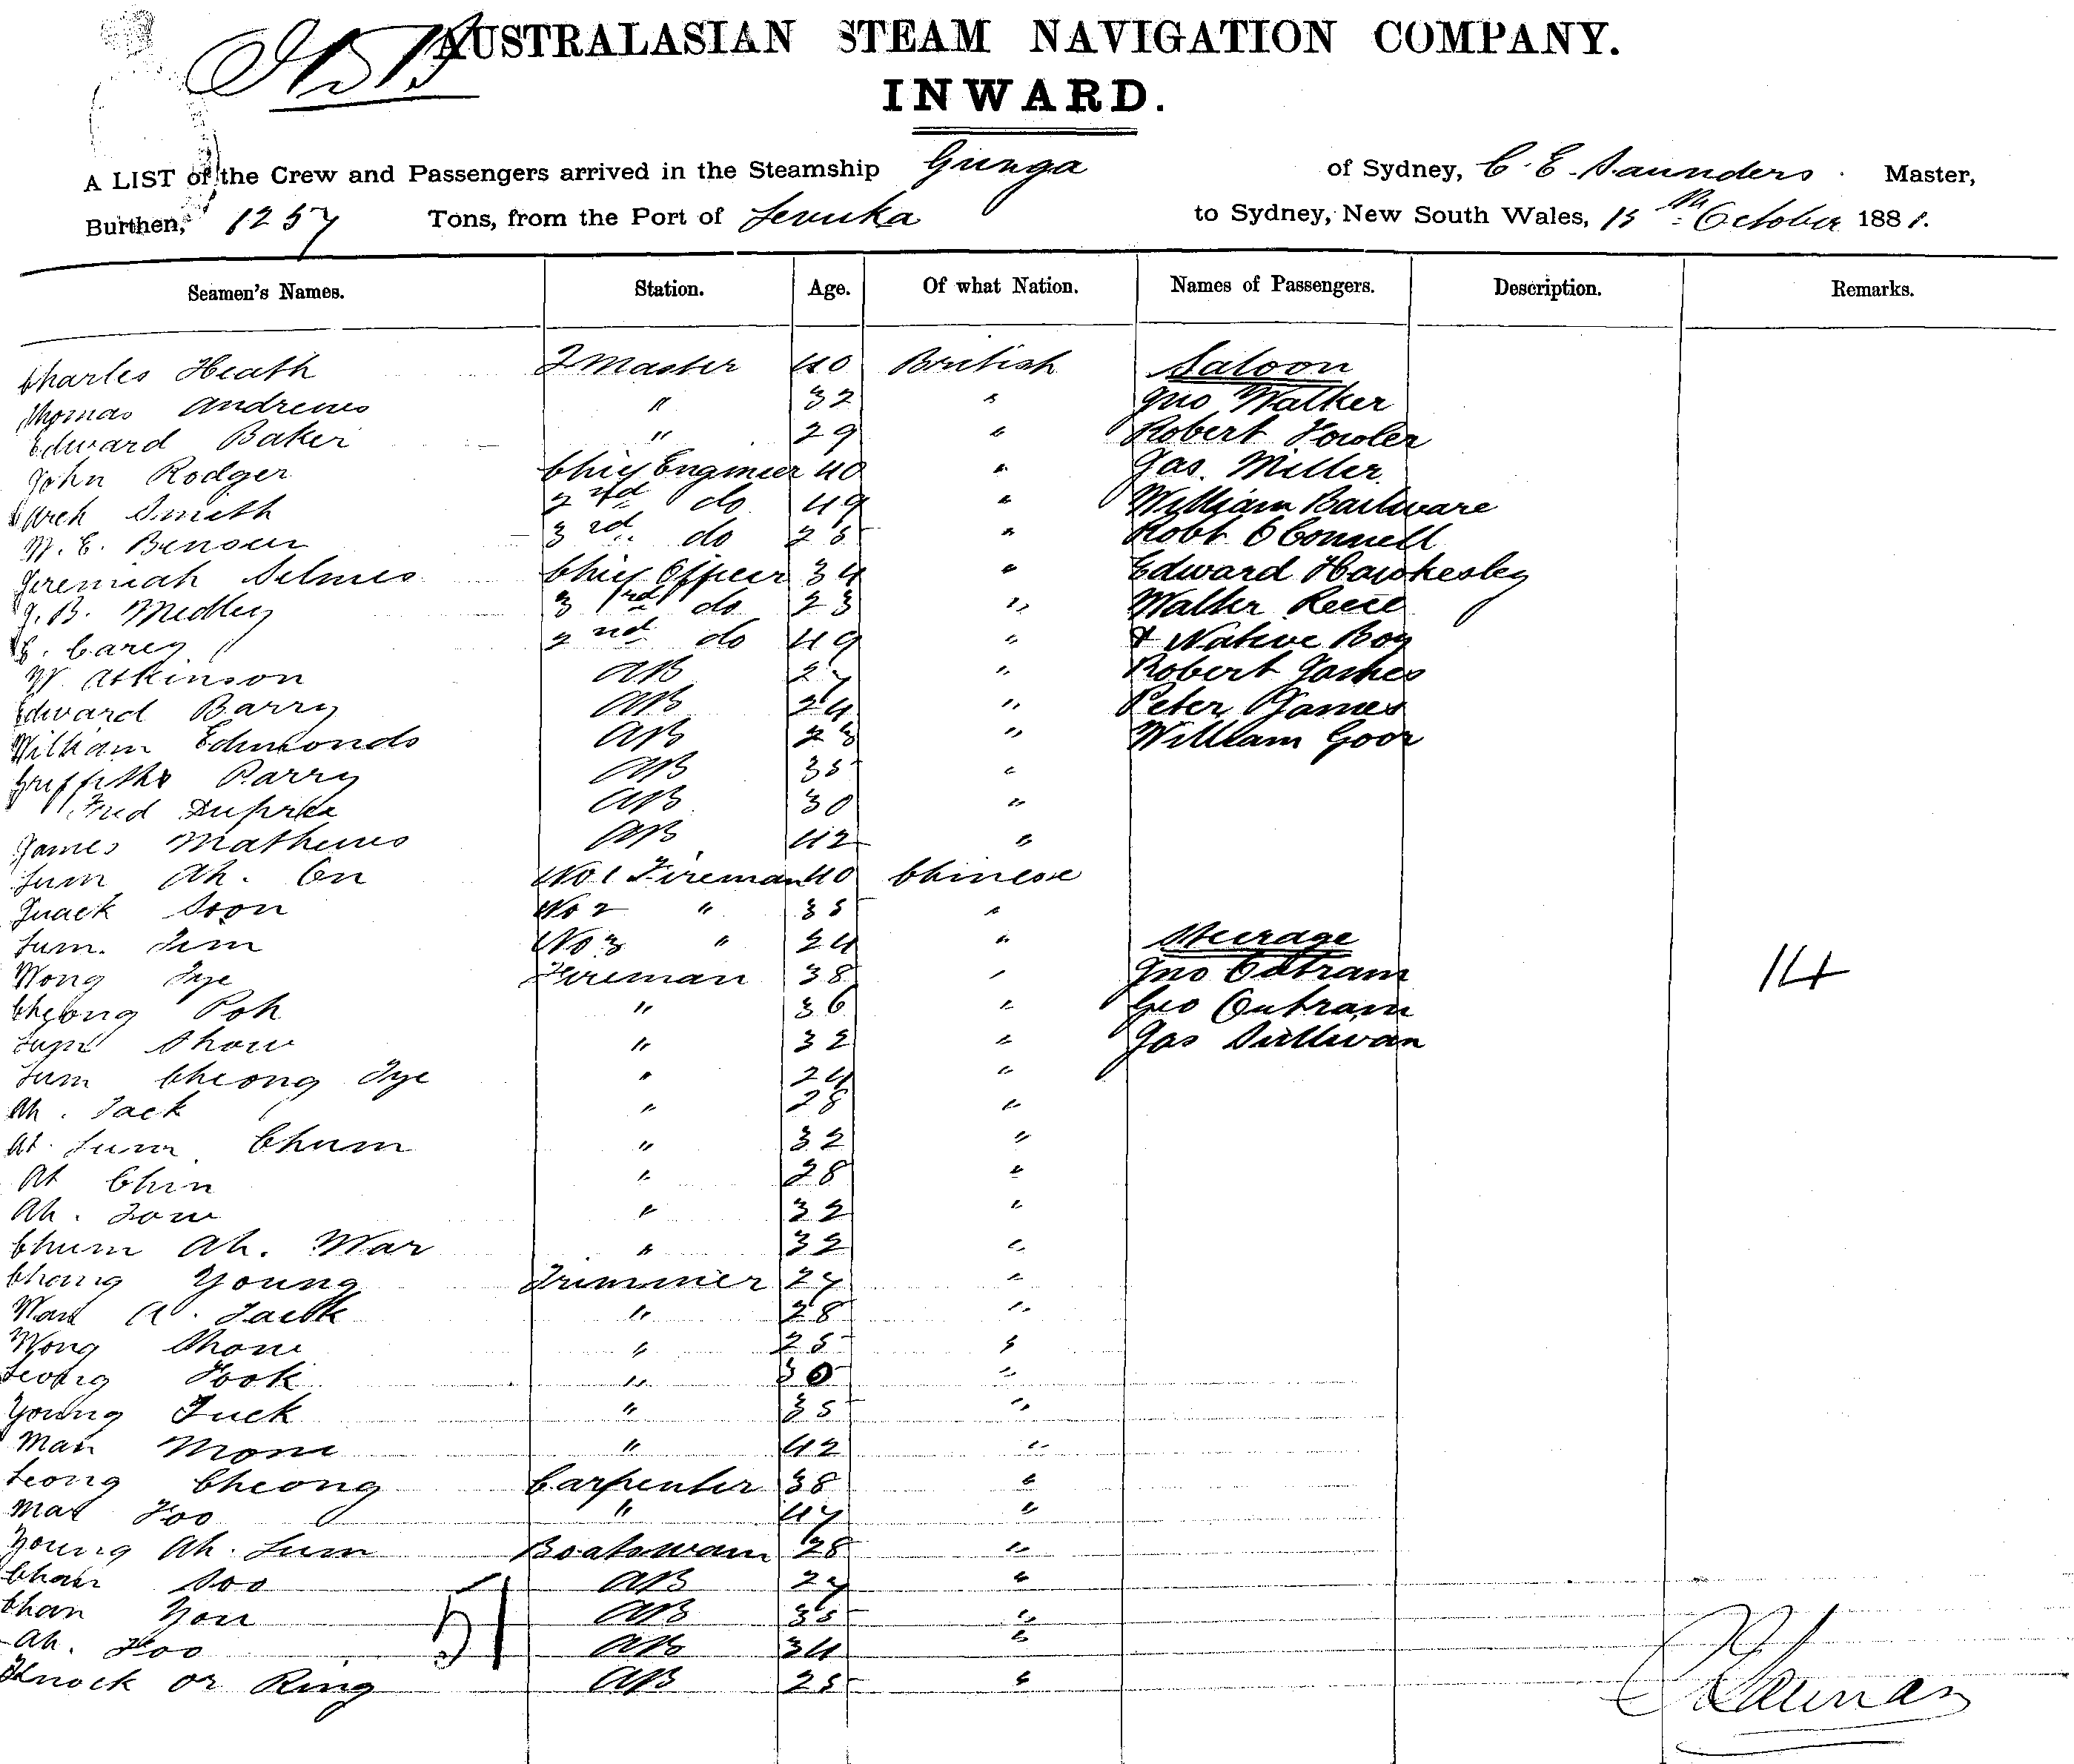 AUSTRALASIAN STEAM NAVIGATION COMPANY.
INWARD.
A LIST of the Crew and Passengers arrived in the Steamship Gunga of Sydney, C. E. Saunders Master,
Burthen, 1257 Tons, from the Port of Levuka to Sydney, New South Wales, 15th October 1881.
Seamen's Names. Station. Age. Of what Nation. Names of Passengers. Description. Remarks.
Charles Heath 2 Master 40 British Saloon
Thomas Andrews " 32 " Jno Walker
Edward Baker " 29 " Robert Fowler
John Rodger Chief Engineer 40 " Jas. Miller
Arch Smith 2nd do 49 " William Bailware
W. E. Bensen 3rd do 25 " Robt O Connell
Jeremiah Selmes Chief Officer 34 " Edward Hawkesley
J. B. Medley 3rd do 23 " Walter Reece
E. Carey 2nd do 49 " & Native Boy
W. Atkinson AB 27 " Robert James
Edward Barry AB 24 " Peter James
William Edmonds AB 23 " William Goor
Griffiths Parry AB 35 "
Fred Duprea AB 30 "
James Mathews AB 42 "
Lum Ah. On No 1 Fireman 40 Chinese
Quack Soon No 2 " 35 "
Lum. Lim No 3 " 24 " Steerage
Wong Tye Fireman 38 " Jno Outram
Cheong Poh " 36 " Geo Outram
Lum Show " 32 " Jas Sullivan
14
Lum Cheong Tye " 24 "
Ah. Jack " 28 "
At. Lum Chum " 32 "
At Chin " 28 "
Ah. Low " 32 "
Chum Ah. War " 32 "
Chong Young Trimmer 27 "
Man A. Jack " 28 "
Wong Show " 25 "
Leong Fook " 30 "
Young Tuck " 35 "
Man Mow " 42 "
Leong Cheong Carpenter 38 "
Mat Foo " 47 "
Young Ah. Lum Boatswain 28 "
Chan Soo AB 27 "
Chan You 51 AB 35 "
Ah. Foo AB 34 "
Knock or Ring AB 25 "